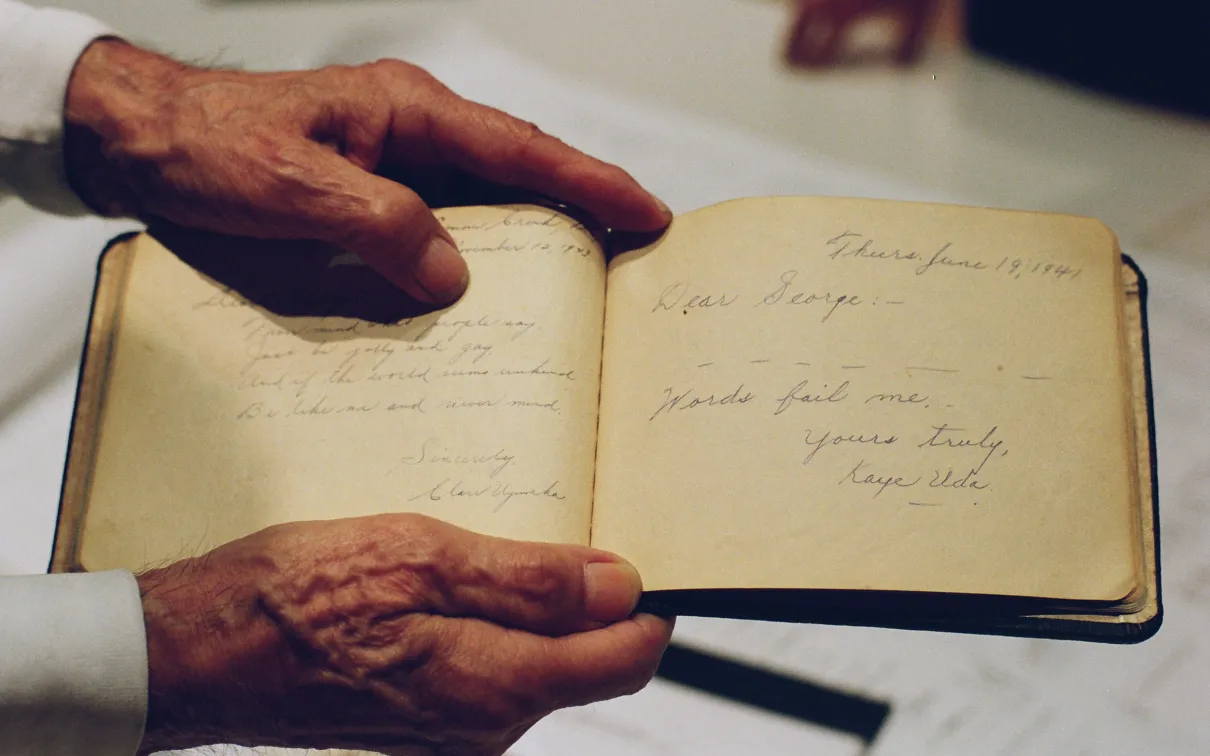 Lemon Creek,
November 12, 1943
mind what people say
Just be jolly and gay,
And if the world seems unkind
Be like me and never mind.
Sincerely,
Clare
Thurs. June 19, 1941
Dear George:-
— — — — — —
Words fail me.
Yours truly,
Kaye Uda.